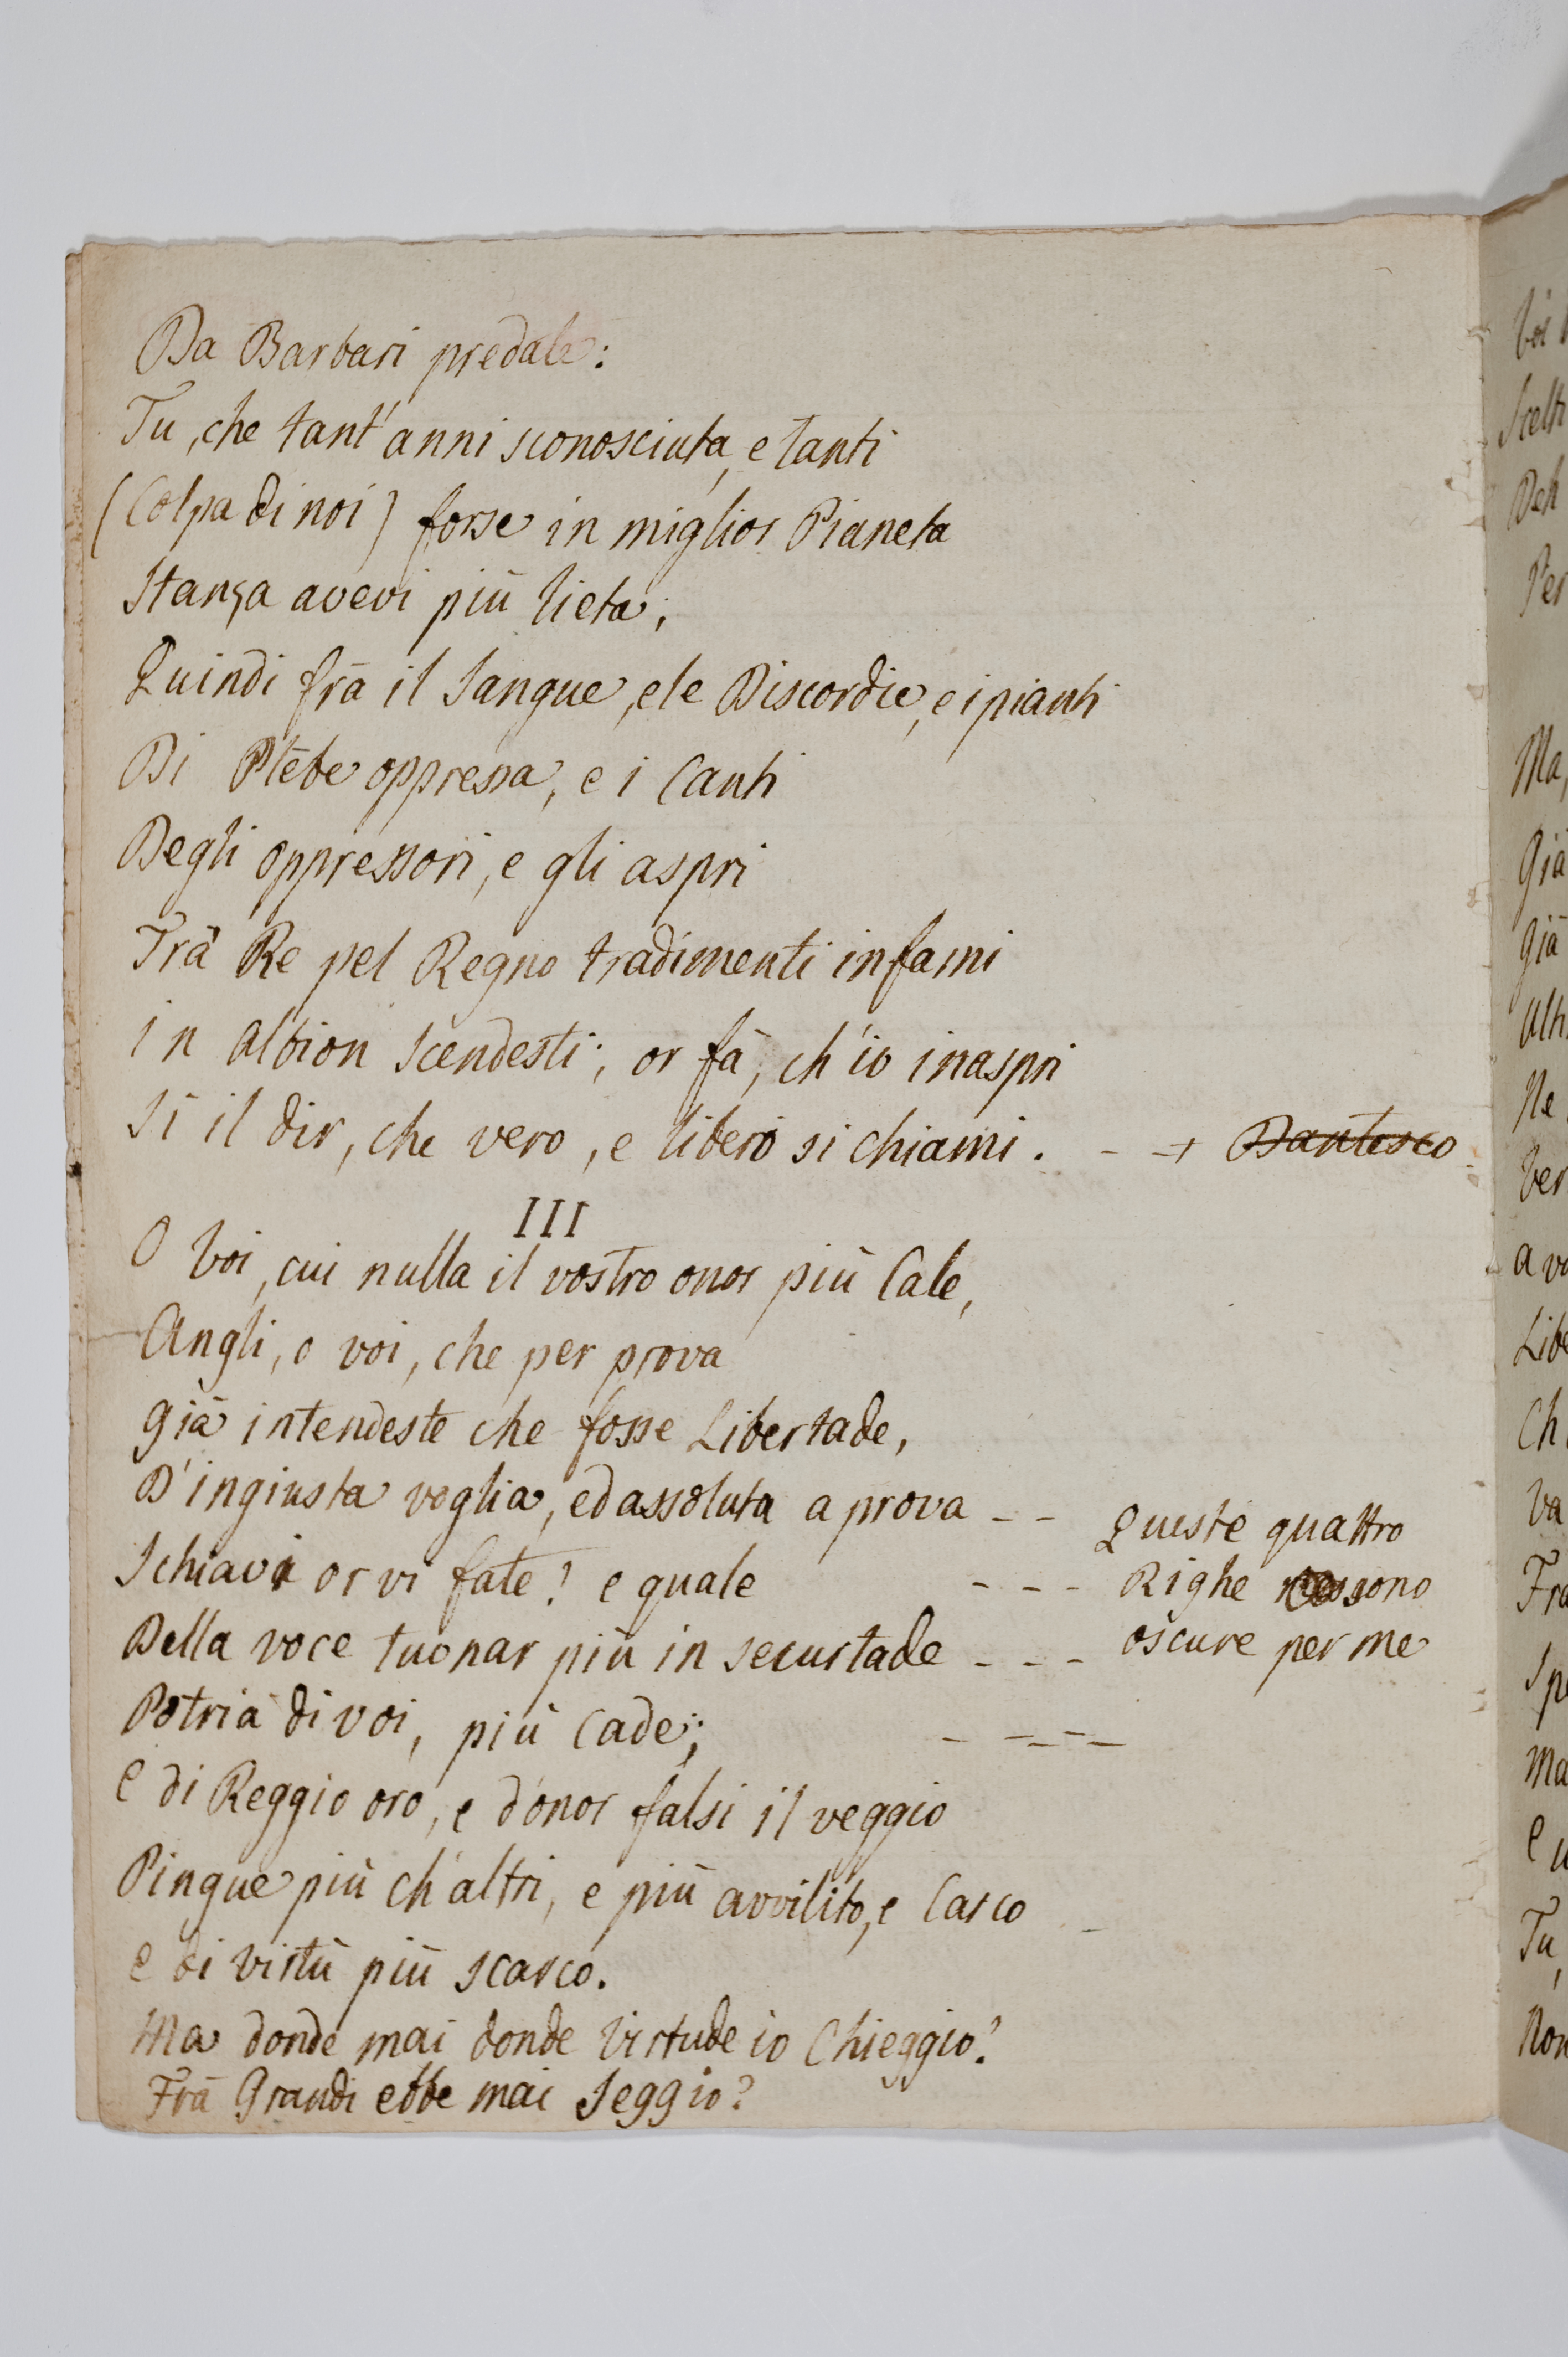 Da Barbari predale:
Tu, che tant'anni sconosciuta, e tanti
(Colpa di noi) forse in miglior Pianeta
Stanza avevi più lieta;
Quindi frà il Sangue, e le Discordie, e i pianti
Di Plebe oppressa, e i Canti
Degli oppressori, e gli aspri
Trà Re pel Regno tradimenti infami
in Albion Scendesti; or fà, ch'io inaspri
Sì il dir, che vero, e libero si chiami. - → Dantesco
III
O Voi, cui nulla il vostro onor più Cale,
Angli, o voi, che per prova
già intendeste che fosse Libertade,
D'ingiusta voglia, ed assoluta a prova - -
Schiavi or vi fate! e quale - - -
Della voce tuonar più in securtade - - -
Potria di voi, più Cade; - - - - -
e di Reggio oro, e d'onor falsi il veggio
Pingue più ch'altri, e più avvilito, e Carco
e di virtù più scarco.
Ma donde mai donde Virtude io Chieggio?
Frà Grandi ebbe mai Seggio?
Queste quattro
Righe sono
oscure per me
Scelt
Deh
Per
Ma,
Già
già
Ne
Ver
a vo
Libe
Ch
Va
Fra
Spe
Ma
Tu,
Non